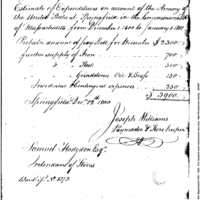 Estimate of Expenditures on account of the Armory of
the United States at Springfield in the Commonwealth
of Massachusetts from December 1 1800 to January 1 1801
Probable amount of Pay Roll for December $ 2300
further supply of Iron 700
Steel 300
Grindstones Oil &
Incidental & Contingent expenses 250
$ 3900
Springfield Dec 12th 1800
Joseph Williams
Paymaster & Store keeper
Samuel Hodgdon Esqr
Intendant of Stores